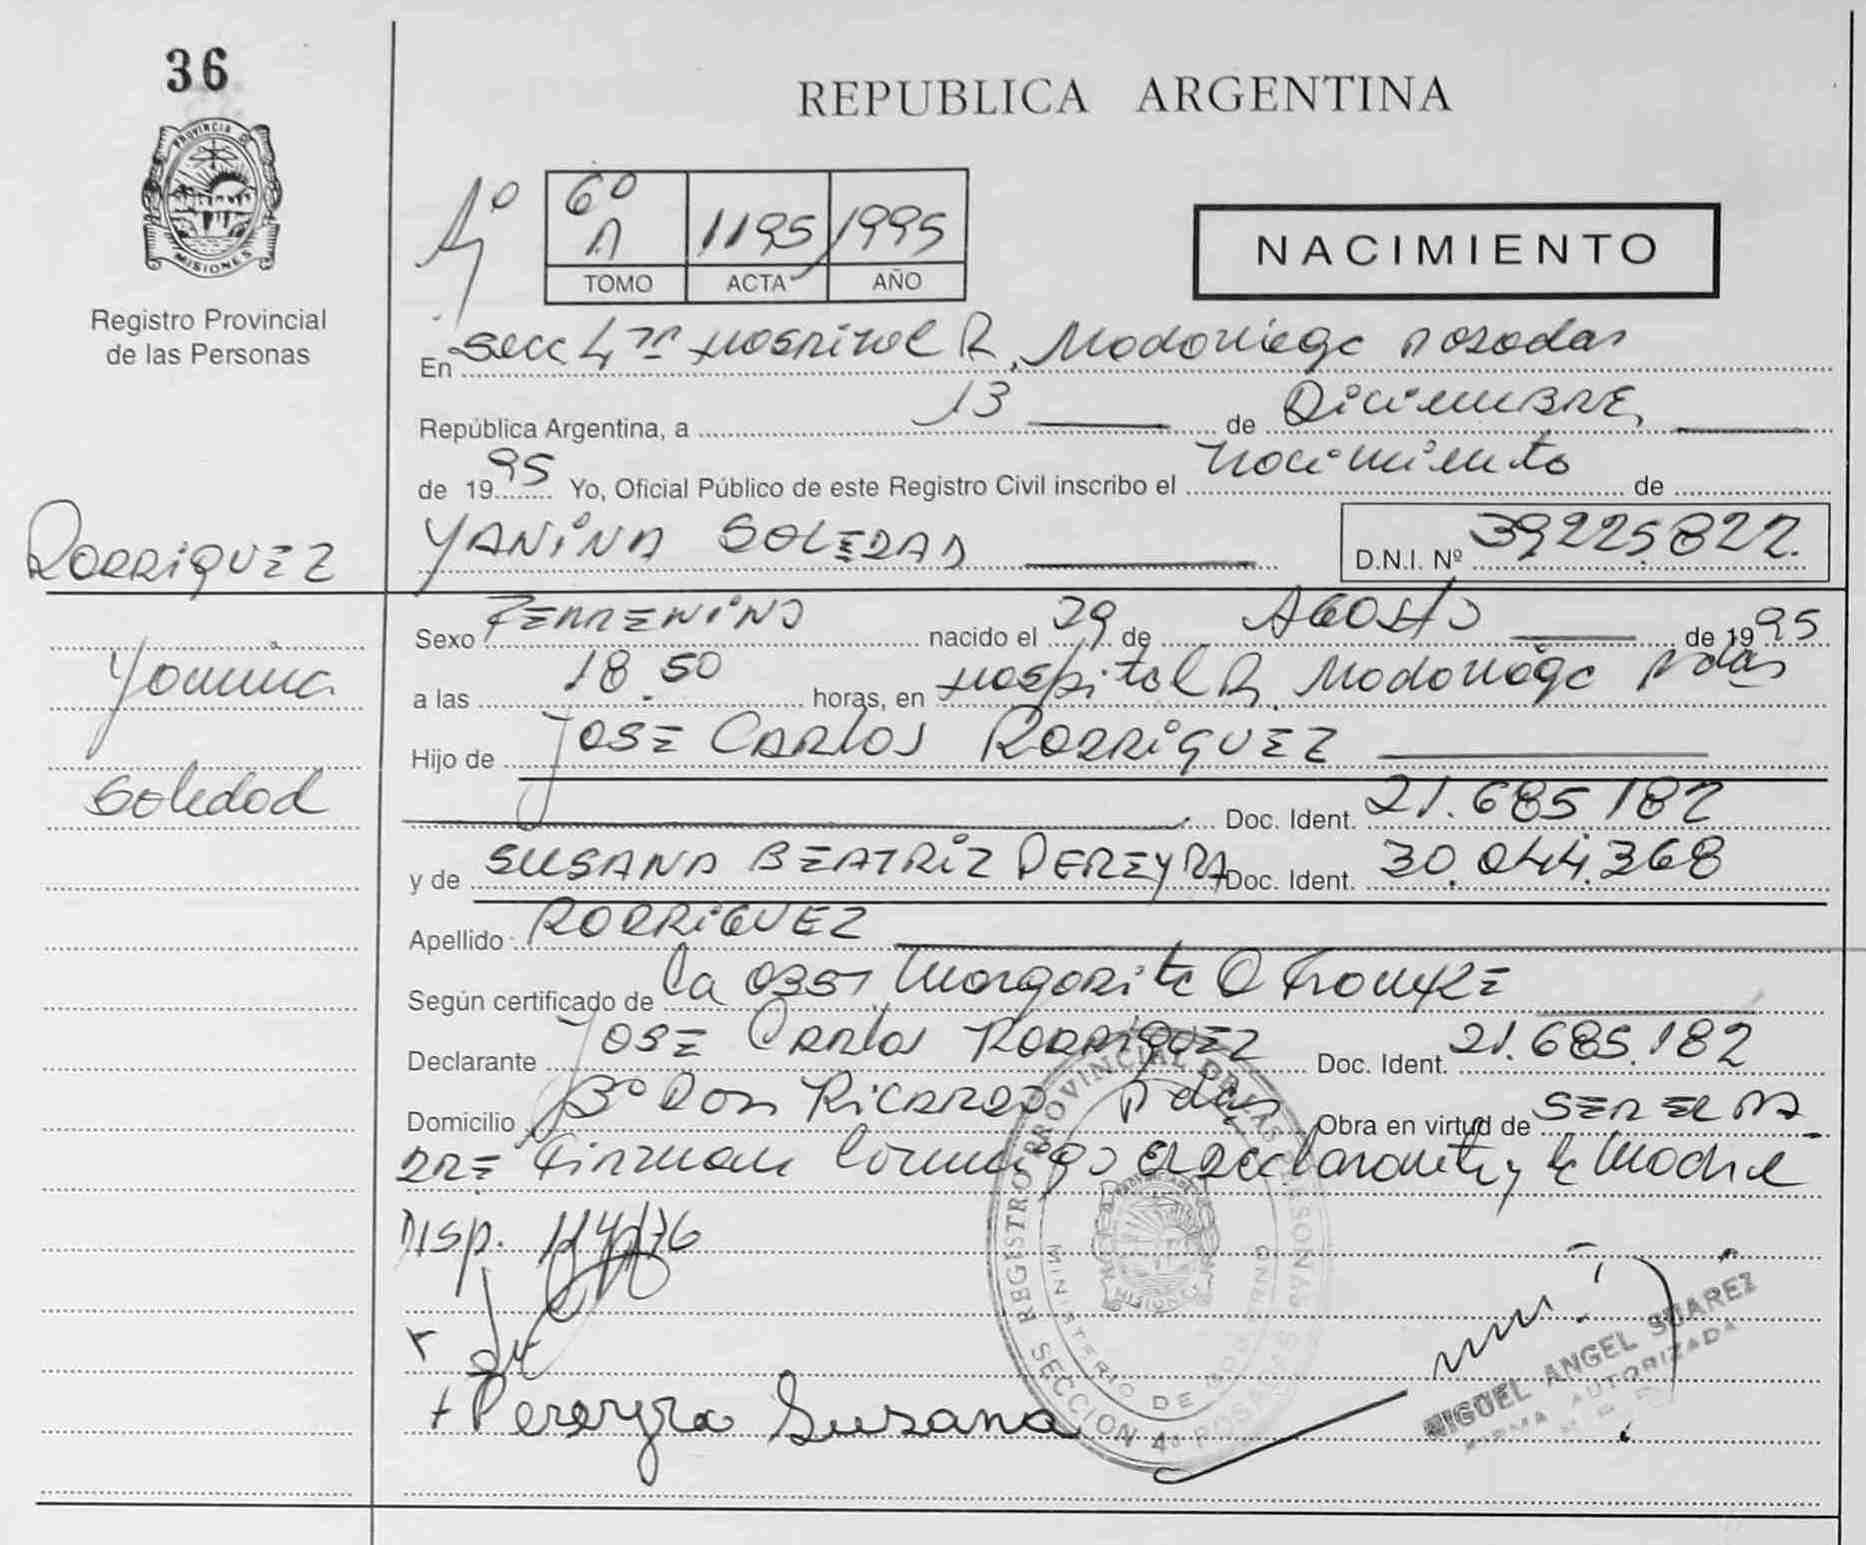 36
REPUBLICA ARGENTINA
PROVINCIA DE
MISIONES
Registro Provincial
de las Personas
4º
6º A 1195 1995
TOMO ACTA AÑO
NACIMIENTO
En Secc 4ta Hospital R. Madariaga Posadas
República Argentina, a 13 de Diciembre
de 1995 Yo, Oficial Público de este Registro Civil inscribo el nacimiento de
YANINA SOLEDAD D.N.I. Nº 39225.827.
RODRIGUEZ
Yanina
Soledad
Sexo FEMENINO nacido el 29 de AGOSTO de 1995
a las 18.50 horas, en Hospital R. Madariaga Pdas
Hijo de JOSE CARLOS RODRIGUEZ
Doc. Ident. 21.685.182
y de SUSANA BEATRIZ PEREYRA Doc. Ident. 30.044.368
Apellido RODRIGUEZ
Según certificado de la Obst Margarita O
Declarante JOSE Carlos RODRIGUEZ Doc. Ident. 21.685.182
Domicilio Bº Don Ricardo Pdas Obra en virtud de SER EL PA
DRE Firman conmigo el declarante y la Madre
DISP.
+ Pereyra Susana
REGISTRO PROVINCIAL DE LAS PERSONAS
MINISTERIO DE GOBIERNO
MISIONES
SECCION 4ª POSADAS
MIGUEL ANGEL SUAREZ
FIRMA AUTORIZADA